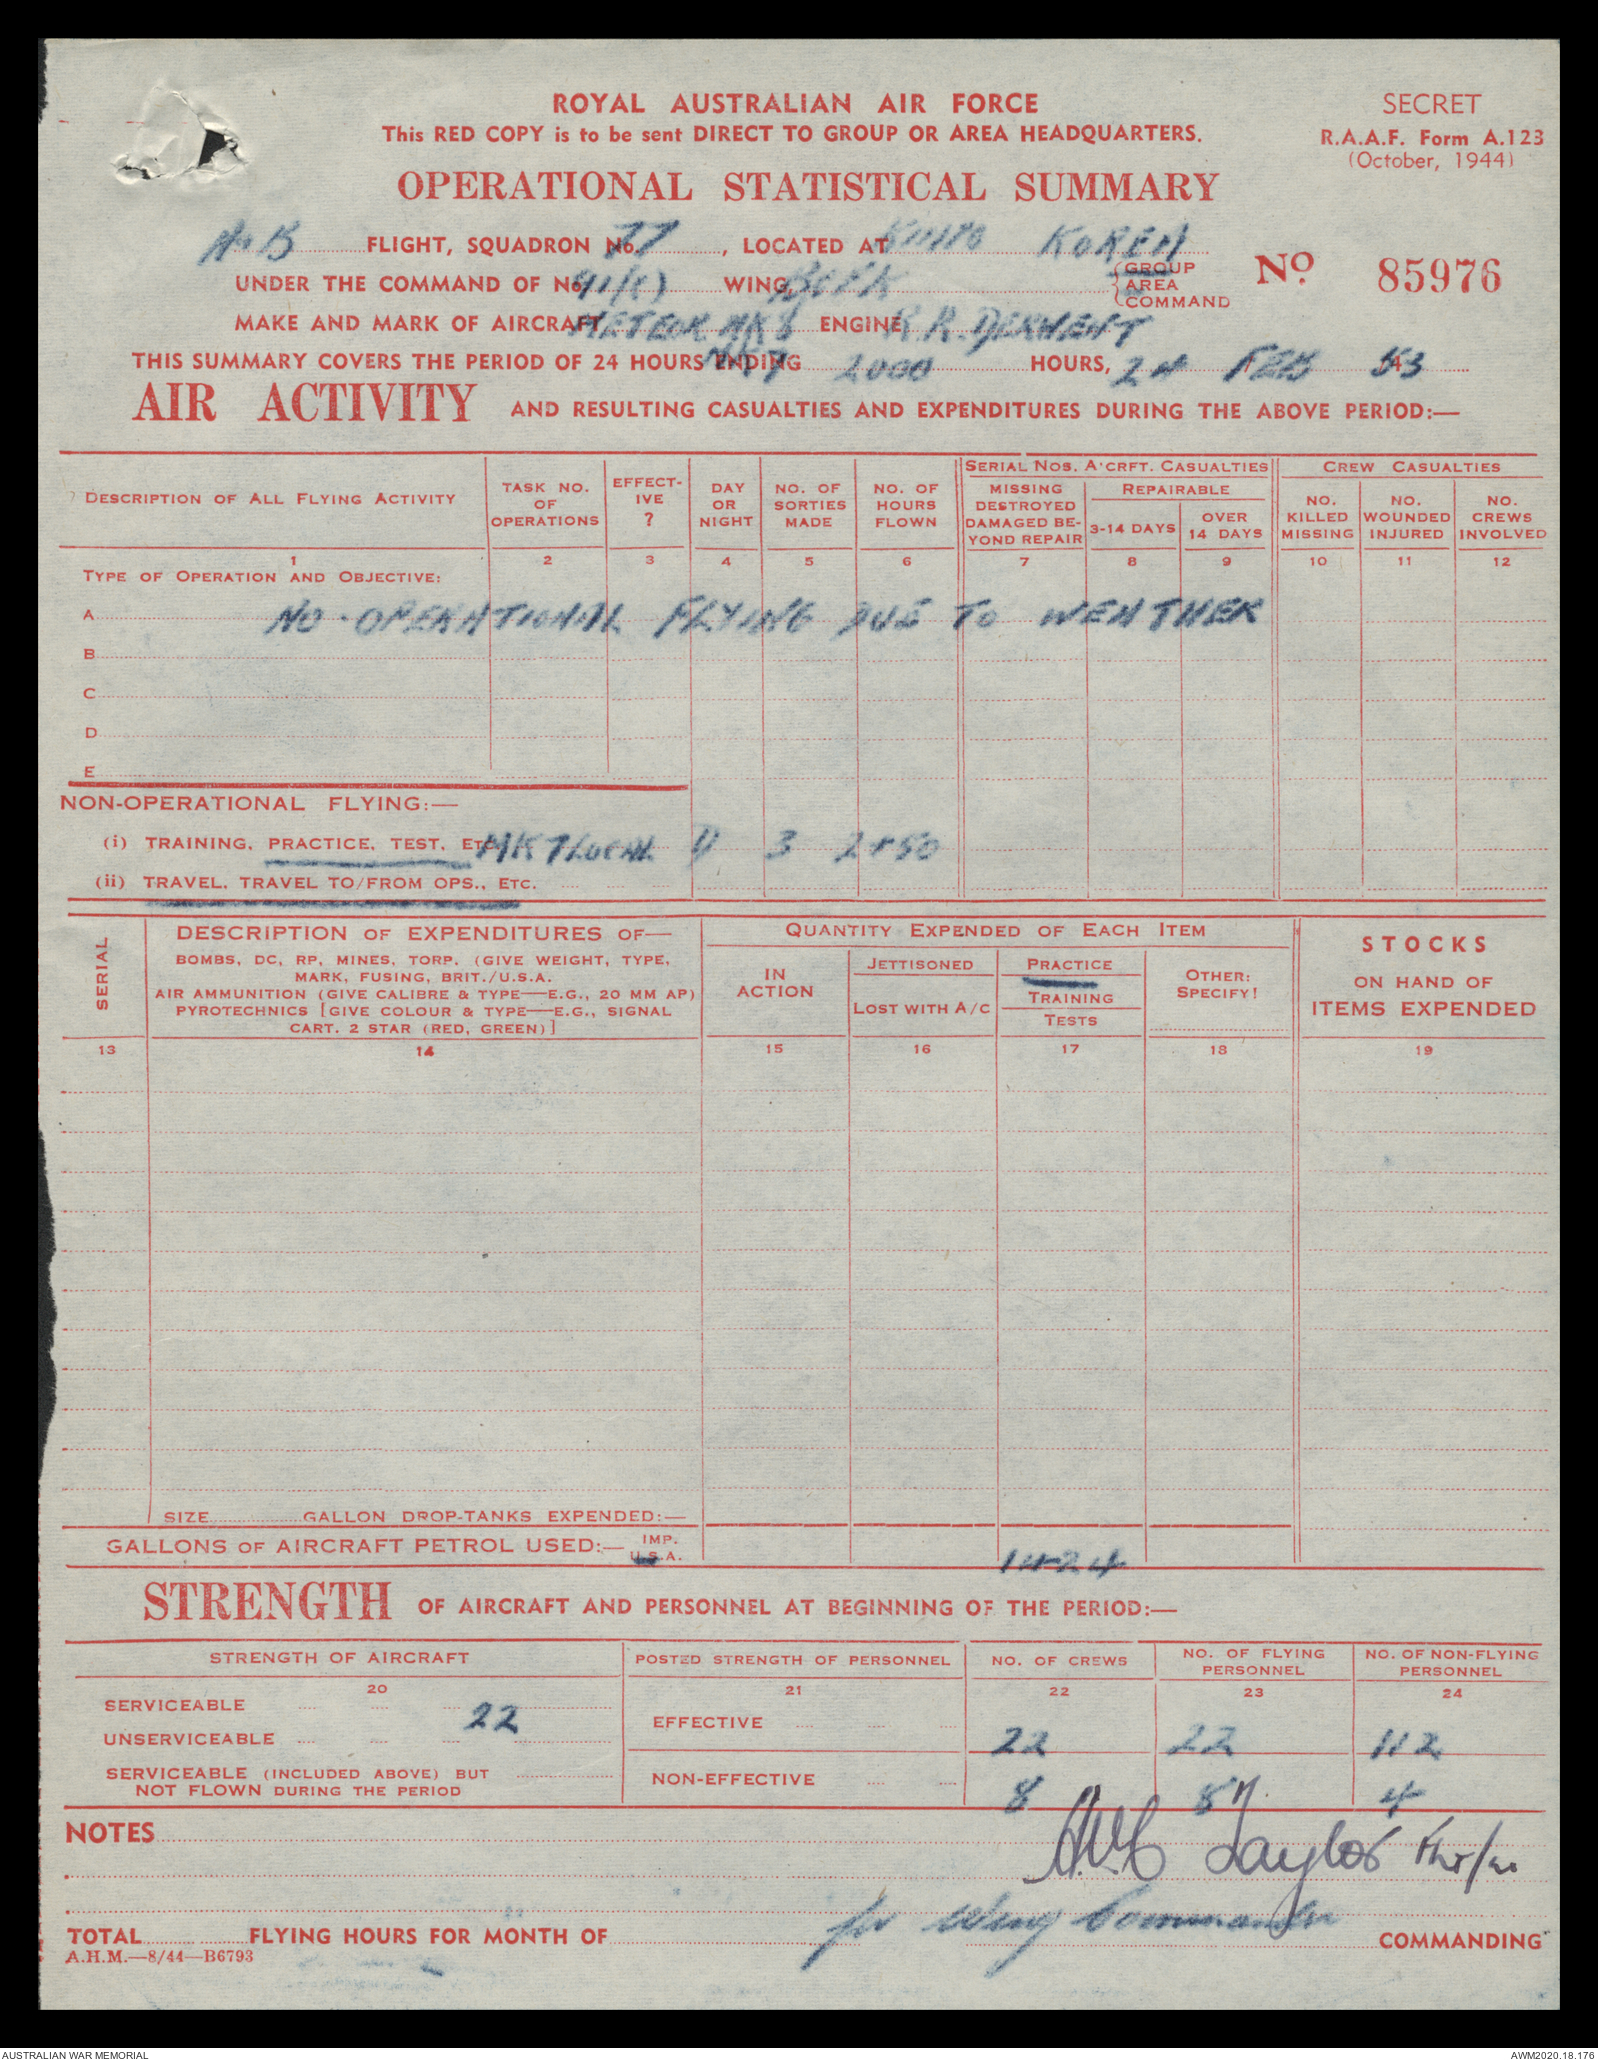 ROYAL AUSTRALIAN AIR FORCE
SECRET
This RED COPY is to be sent DIRECT TO GROUP OR AREA HEADQUARTERS.
R.A.A.F. Form A.123
(October, 1944)
OPERATIONAL STATISTICAL SUMMARY
A & B FLIGHT, SQUADRON No. 77, LOCATED AT KIMPO KOREA
UNDER THE COMMAND OF No. 91(C) WING, BCFK GROUP AREA COMMAND
No. 85976
MAKE AND MARK OF AIRCRAFT METEOR MK 8 ENGINE R.R. DERWENT
MK 7
THIS SUMMARY COVERS THE PERIOD OF 24 HOURS ENDING 2000 HOURS, 24 FEB 53
AIR ACTIVITY AND RESULTING CASUALTIES AND EXPENDITURES DURING THE ABOVE PERIOD:—
DESCRIPTION OF ALL FLYING ACTIVITY
TASK NO. OF OPERATIONS
EFFECT-IVE ?
DAY OR NIGHT
NO. OF SORTIES MADE
NO. OF HOURS FLOWN
SERIAL NOS. A'CRFT. CASUALTIES
MISSING DESTROYED DAMAGED BE-YOND REPAIR
REPAIRABLE
3-14 DAYS
OVER 14 DAYS
CREW CASUALTIES
NO. KILLED MISSING
NO. WOUNDED INJURED
NO. CREWS INVOLVED
1 2 3 4 5 6 7 8 9 10 11 12
TYPE OF OPERATION AND OBJECTIVE:
A NO-OPERATIONAL FLYING DUE TO WEATHER
B
C
D
E
NON-OPERATIONAL FLYING:—
(i) TRAINING, PRACTICE, TEST, ETC. MK 7 LOCAL D 3 2+50
(ii) TRAVEL, TRAVEL TO/FROM OPS., ETC.
SERIAL
DESCRIPTION OF EXPENDITURES OF—
BOMBS, DC, RP, MINES, TORP. (GIVE WEIGHT, TYPE,
MARK, FUSING, BRIT./U.S.A.
AIR AMMUNITION (GIVE CALIBRE & TYPE—E.G., 20 MM AP)
PYROTECHNICS [GIVE COLOUR & TYPE—E.G., SIGNAL
CART. 2 STAR (RED, GREEN)]
QUANTITY EXPENDED OF EACH ITEM
IN ACTION
JETTISONED
LOST WITH A/C
PRACTICE
TRAINING
TESTS
OTHER: SPECIFY!
STOCKS
ON HAND OF
ITEMS EXPENDED
13 14 15 16 17 18 19
SIZE GALLON DROP-TANKS EXPENDED:—
GALLONS OF AIRCRAFT PETROL USED:— IMP. U.S.A. 1424
STRENGTH OF AIRCRAFT AND PERSONNEL AT BEGINNING OF THE PERIOD:—
STRENGTH OF AIRCRAFT
POSTED STRENGTH OF PERSONNEL
NO. OF CREWS
NO. OF FLYING PERSONNEL
NO. OF NON-FLYING PERSONNEL
20 21 22 23 24
SERVICEABLE 22
UNSERVICEABLE
EFFECTIVE 22 22 112
SERVICEABLE (INCLUDED ABOVE) BUT
NOT FLOWN DURING THE PERIOD
NON-EFFECTIVE 8 8 4
NOTES
Taylor
for Wing Commander
TOTAL FLYING HOURS FOR MONTH OF COMMANDING
A.H.M.—8/44—B6793
AUSTRALIAN WAR MEMORIAL
AWM2020.18.176